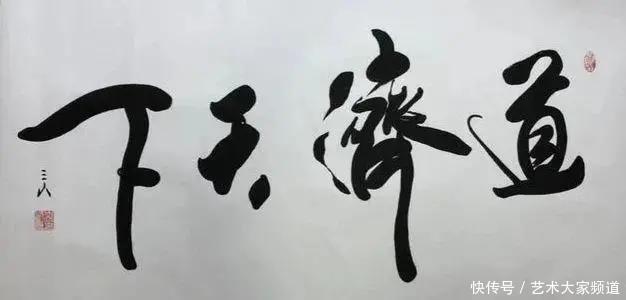 道濟天下
三人
快传号 / 艺术大家频道